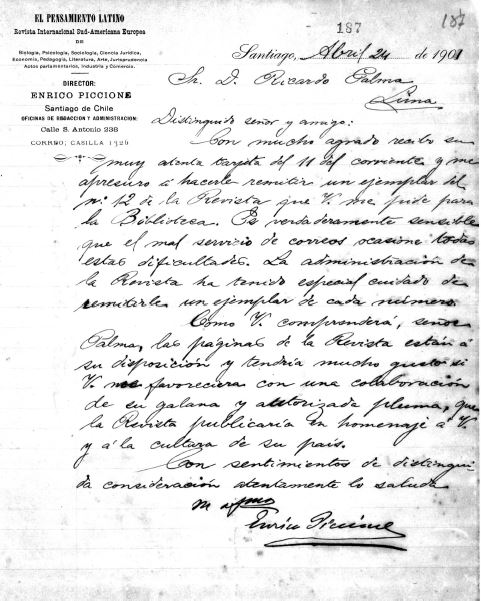 EL PENSAMIENTO LATINO
Revista Internacional Sud-Americana Europea
DE
Biología, Psicología, Sociología, Ciencia Jurídica,
Economía, Pedagogía, Literatura, Arte, Jurisprudencia
Actos parlamentarios, Industria y Comercio.
DIRECTOR:
ENRICO PICCIONE
Santiago de Chile
OFICINAS DE REDACCION Y ADMINISTRACION:
Calle S. Antonio 238
CORREO, CASILLA 1920
187
187
Santiago, Abril 24 de 1901
Sr. D. Ricardo Palma
Lima
Distinguido señor y amigo:
Con mucho agrado recibo su
muy atenta tarjeta del 11 del corriente y me
apresuro á hacerle remitir un ejemplar del
n.° 12 de la Revista que V. me pide para
la Biblioteca. Es verdaderamente sensible
que el mal servicio de correos ocasione todas
estas dificultades. La administración de
la Revista ha tenido especial cuidado de
remitirle un ejemplar de cada número.
Como V. comprenderá, señor
Palma, las páginas de la Revista están á
su disposición y tendría mucho gusto si
V. me favoreciera con una colaboración
de su galana y autorizada pluma, que
la Revista publicaría en homenaje á V.
y á la cultura de su país.
Con sentimientos de distingui
da consideración atentamente lo saluda
Enrico Piccione